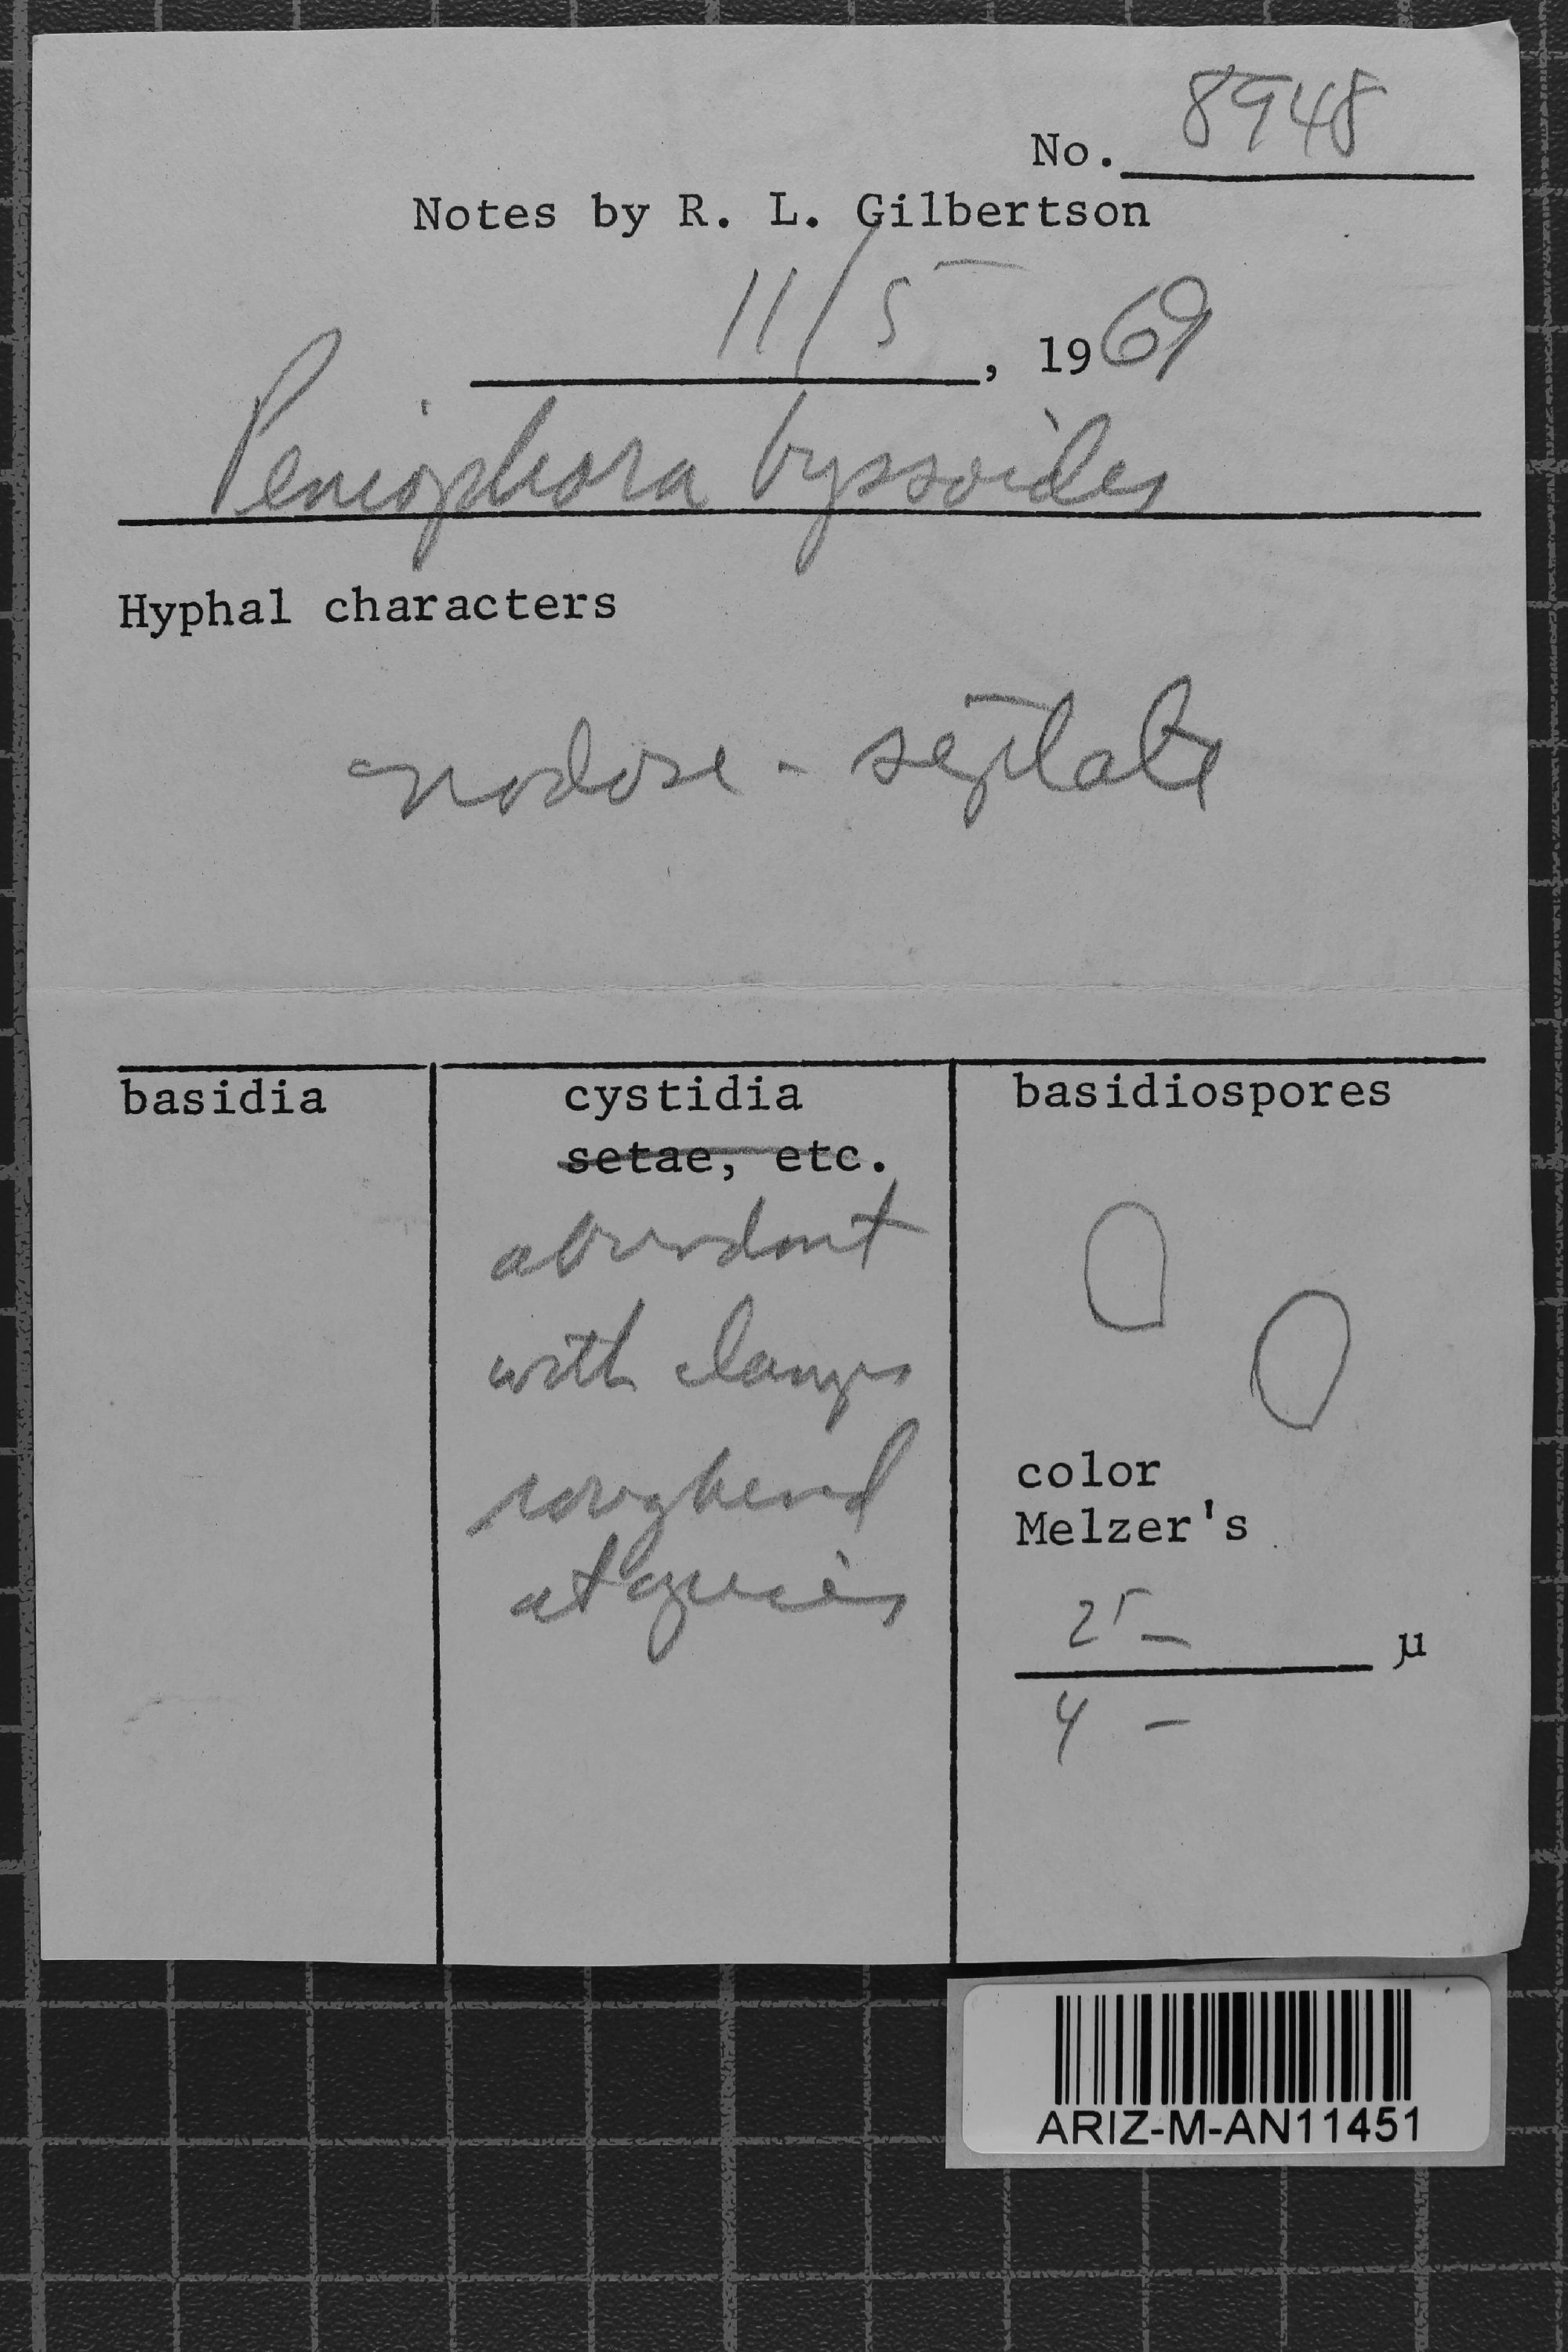 No. 8948
Notes by R. L. Gilbertson
11/5, 1969
Peniophora byssoides
Hyphal characters
nodose - septate
basidia
cystidia
setae, etc.
abundant
with clamps
roughend
at apecies
basidiospores
color
Melzer's
25 - µ
4 -
ARIZ-M-AN11451